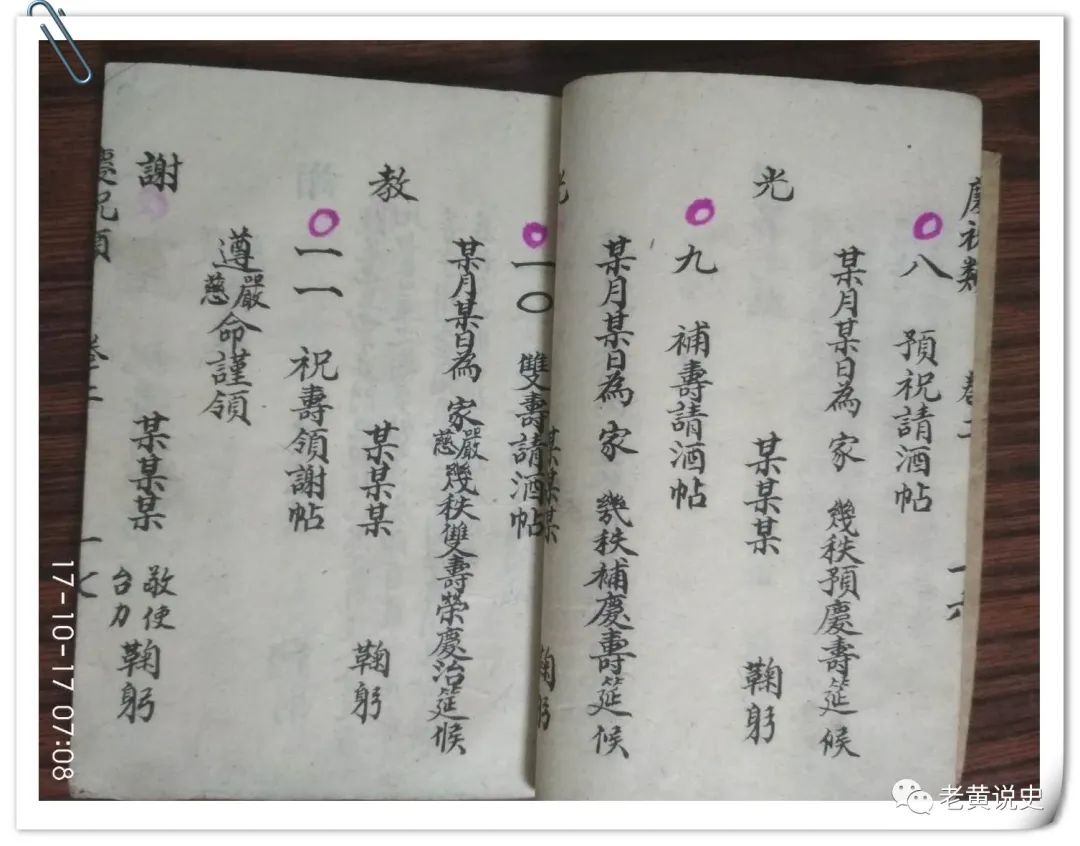 慶祝類 卷二 一六
八 預祝請酒帖
某月某日為 家 幾秩預慶壽筵候
光 某某某 鞠躬
九 補壽請酒帖
某月某日為 家 幾秩補慶壽筵候
光 某某某 鞠躬
一〇 雙壽請酒帖
某月某日為 家嚴慈幾秩雙壽榮慶治筵候
教 某某某 鞠躬
一一 祝壽領謝帖
遵嚴慈命謹領
謝 某某某 敬使台力 鞠躬
慶祝類 卷二 一七
17-10-17 07:08
老黄说史